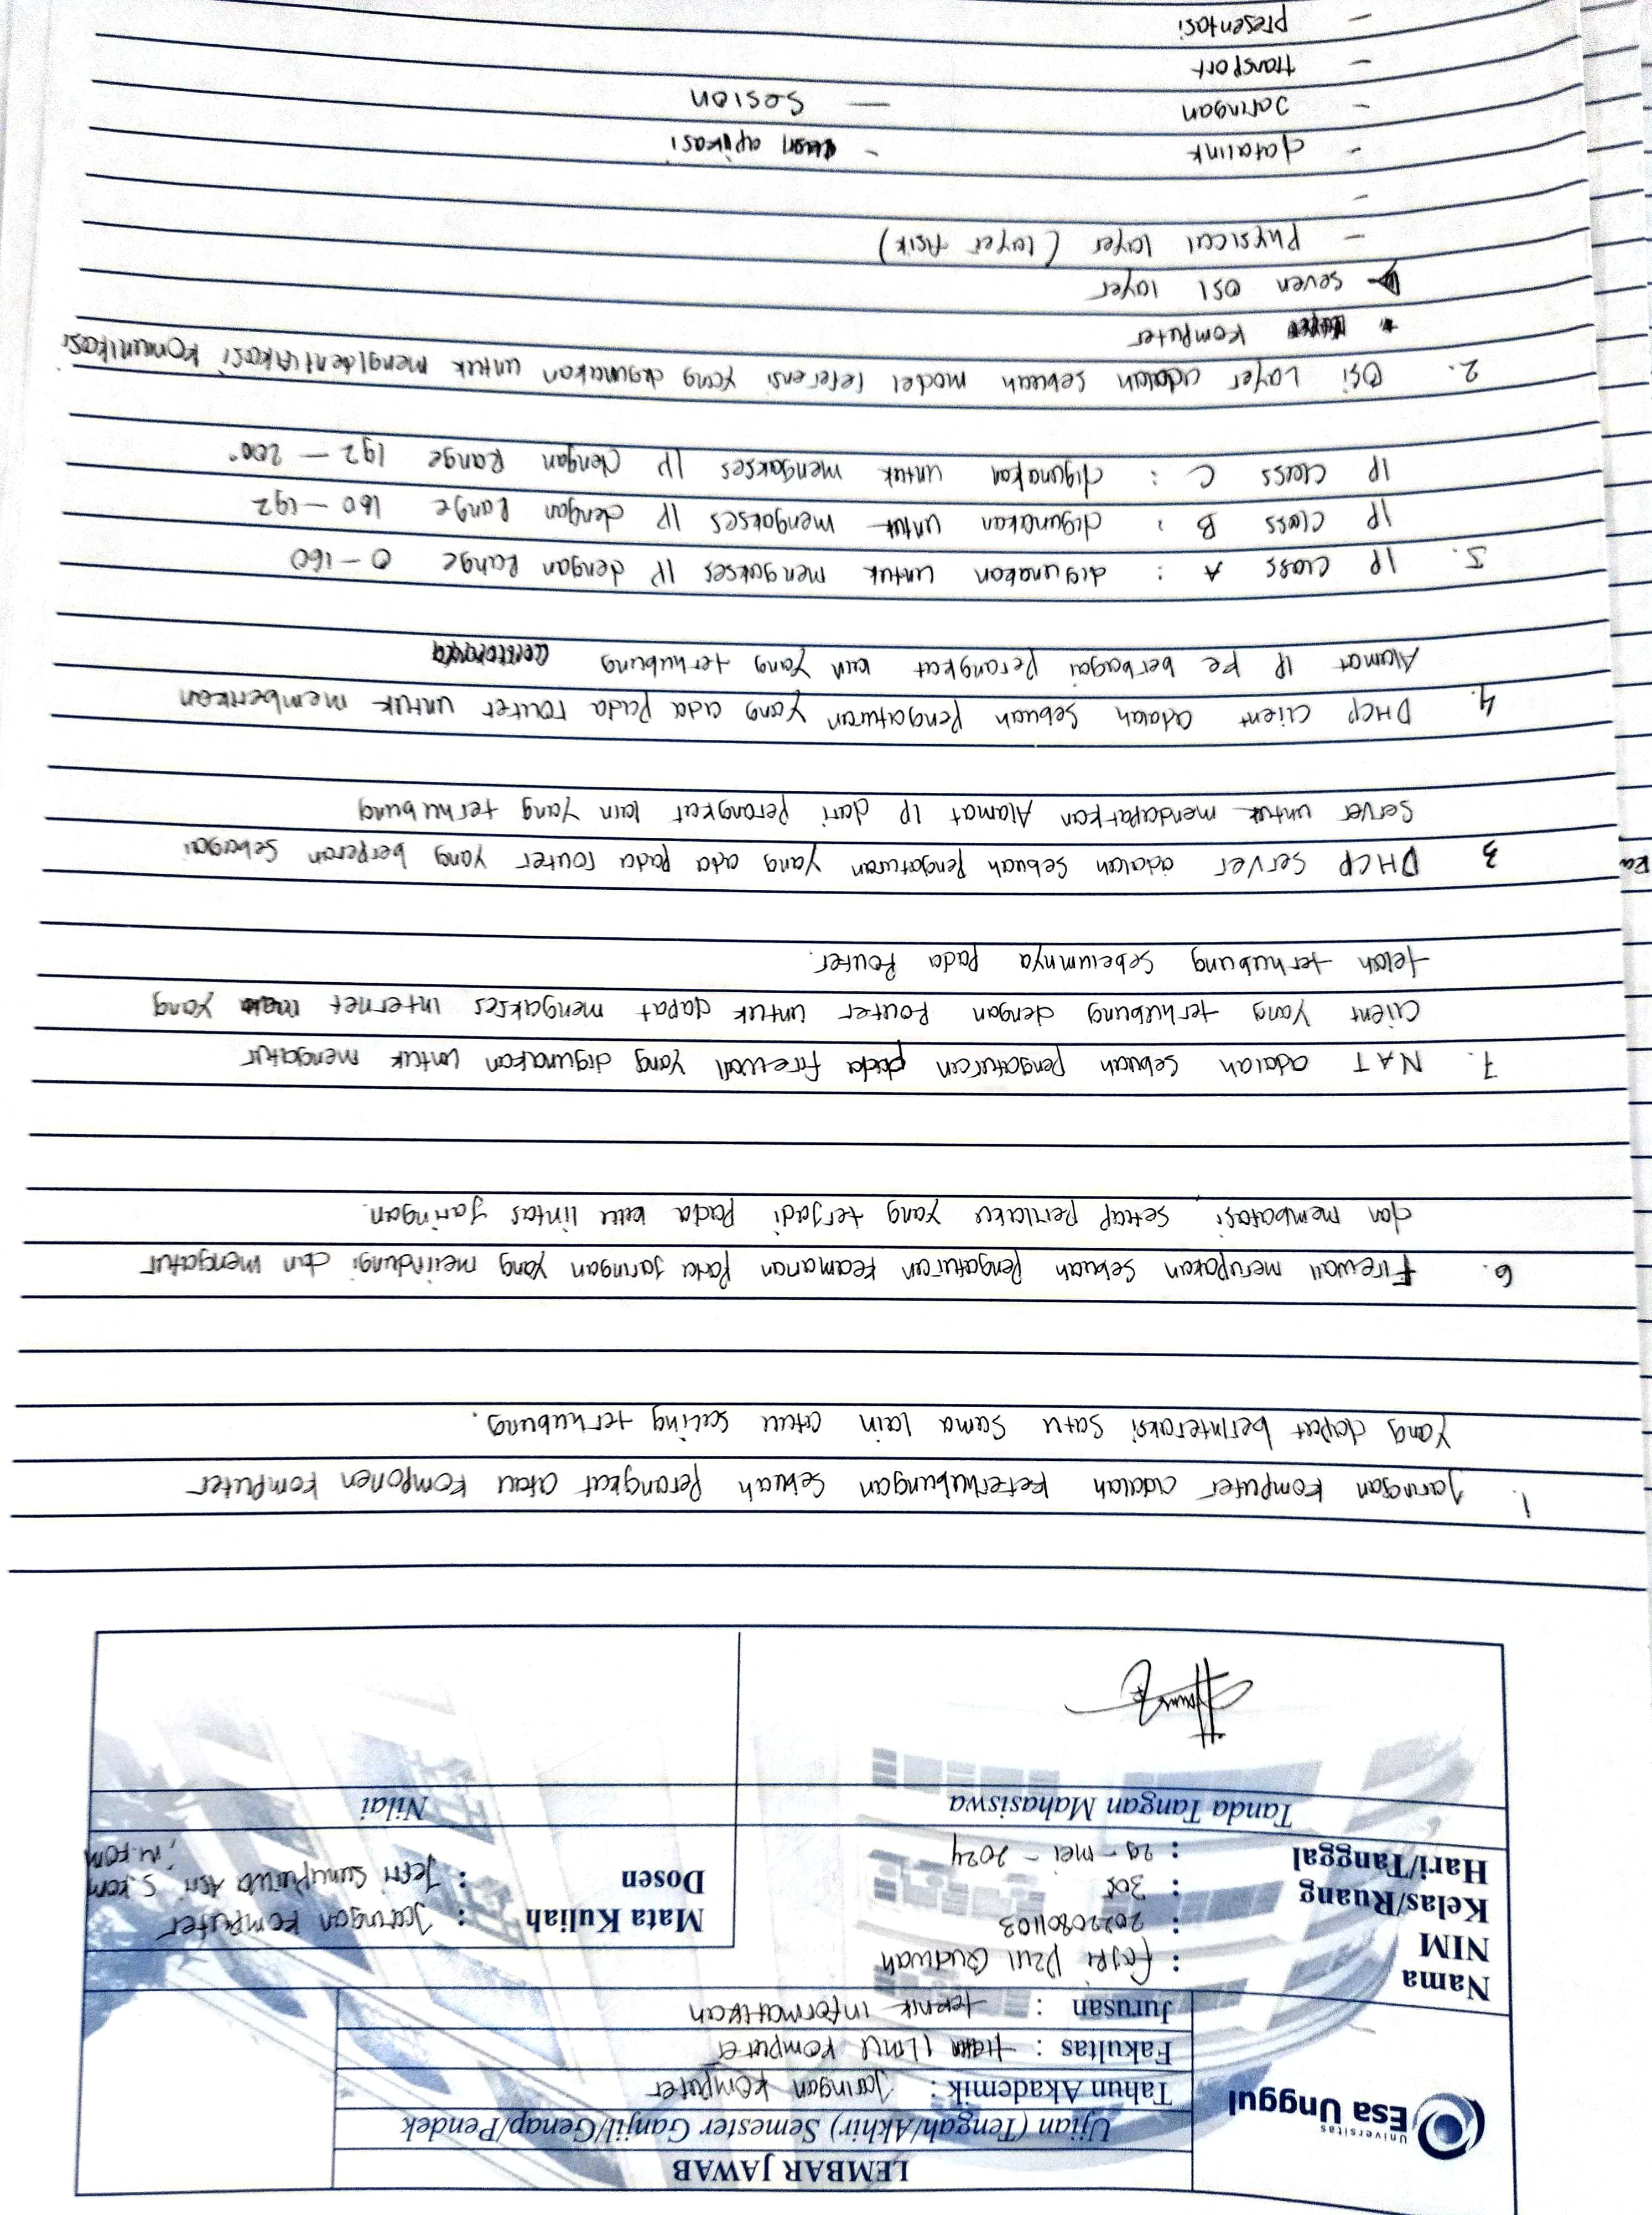 Universitas
Esa Unggul
LEMBAR JAWAB
Ujian (Tengah/Akhir) Semester Ganjil/Genap/Pendek
Tahun Akademik : Jaringan Komputer
Fakultas : ILmu Komputer
Jurusan : teknik informatikan
Nama : Fajri Dzul Qudwah
NIM : 20220801103
Kelas/Ruang : 305
Hari/Tanggal : 29 - mei - 2024
Mata Kuliah : Jaringan Komputer
Dosen : Jefri Sunupurwa Asri, S.Kom
, M.KOM
Tanda Tangan Mahasiswa
Nilai
1. Jaringan Komputer adalah keterhubungan sebuah Perangkat atau Komponen Komputer
Yang dapat berinteraksi satu sama lain atau saling terhubung.
6. Firewall merupakan sebuah Pengaturan Keamanan Pada Jaringan yang melindungi dan mengatur
dan membatasi setiap perilaku yang terjadi pada lintas Jaringan.
7. NAT adalah sebuah pengaturan pada firewall yang digunakan untuk mengatur
Client Yang terhubung dengan Router untuk dapat mengakses internet yang
telah terhubung sebelumnya pada Router.
Ra
3 DHCP Server adalah sebuah Pengaturan yang ada pada router yang berperan sebagai
Server untuk mendapatkan Alamat IP dari Perangkat lain Yang terhubung
4. DHCP Client adalah sebuah Pengaturan yang ada pada router untuk memberikan
Alamat IP ke berbagai Perangkat lain Yang terhubung
5. IP Class A : digunakan untuk mengakses IP dengan Range 0 - 160
IP Class B : digunakan untuk mengakses IP dengan Range 160 - 192
IP Class C : digunakan untuk mengakses IP dengan Range 192 - 200
2. Osi Layer adalah sebuah model referensi yang digunakan untuk mengidentifikasi Komunikasi
Komputer
seven OSI layer
- Physical layer (layer fisik)
-
- datalink
- Jaringan
- transport
- presentasi
- apikasi
- Sesion